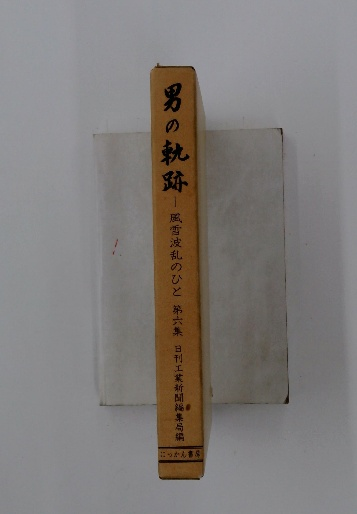 男の軌跡
―風雪波乱のひと 第六集 日刊工業新聞編集局編
にっかん書房